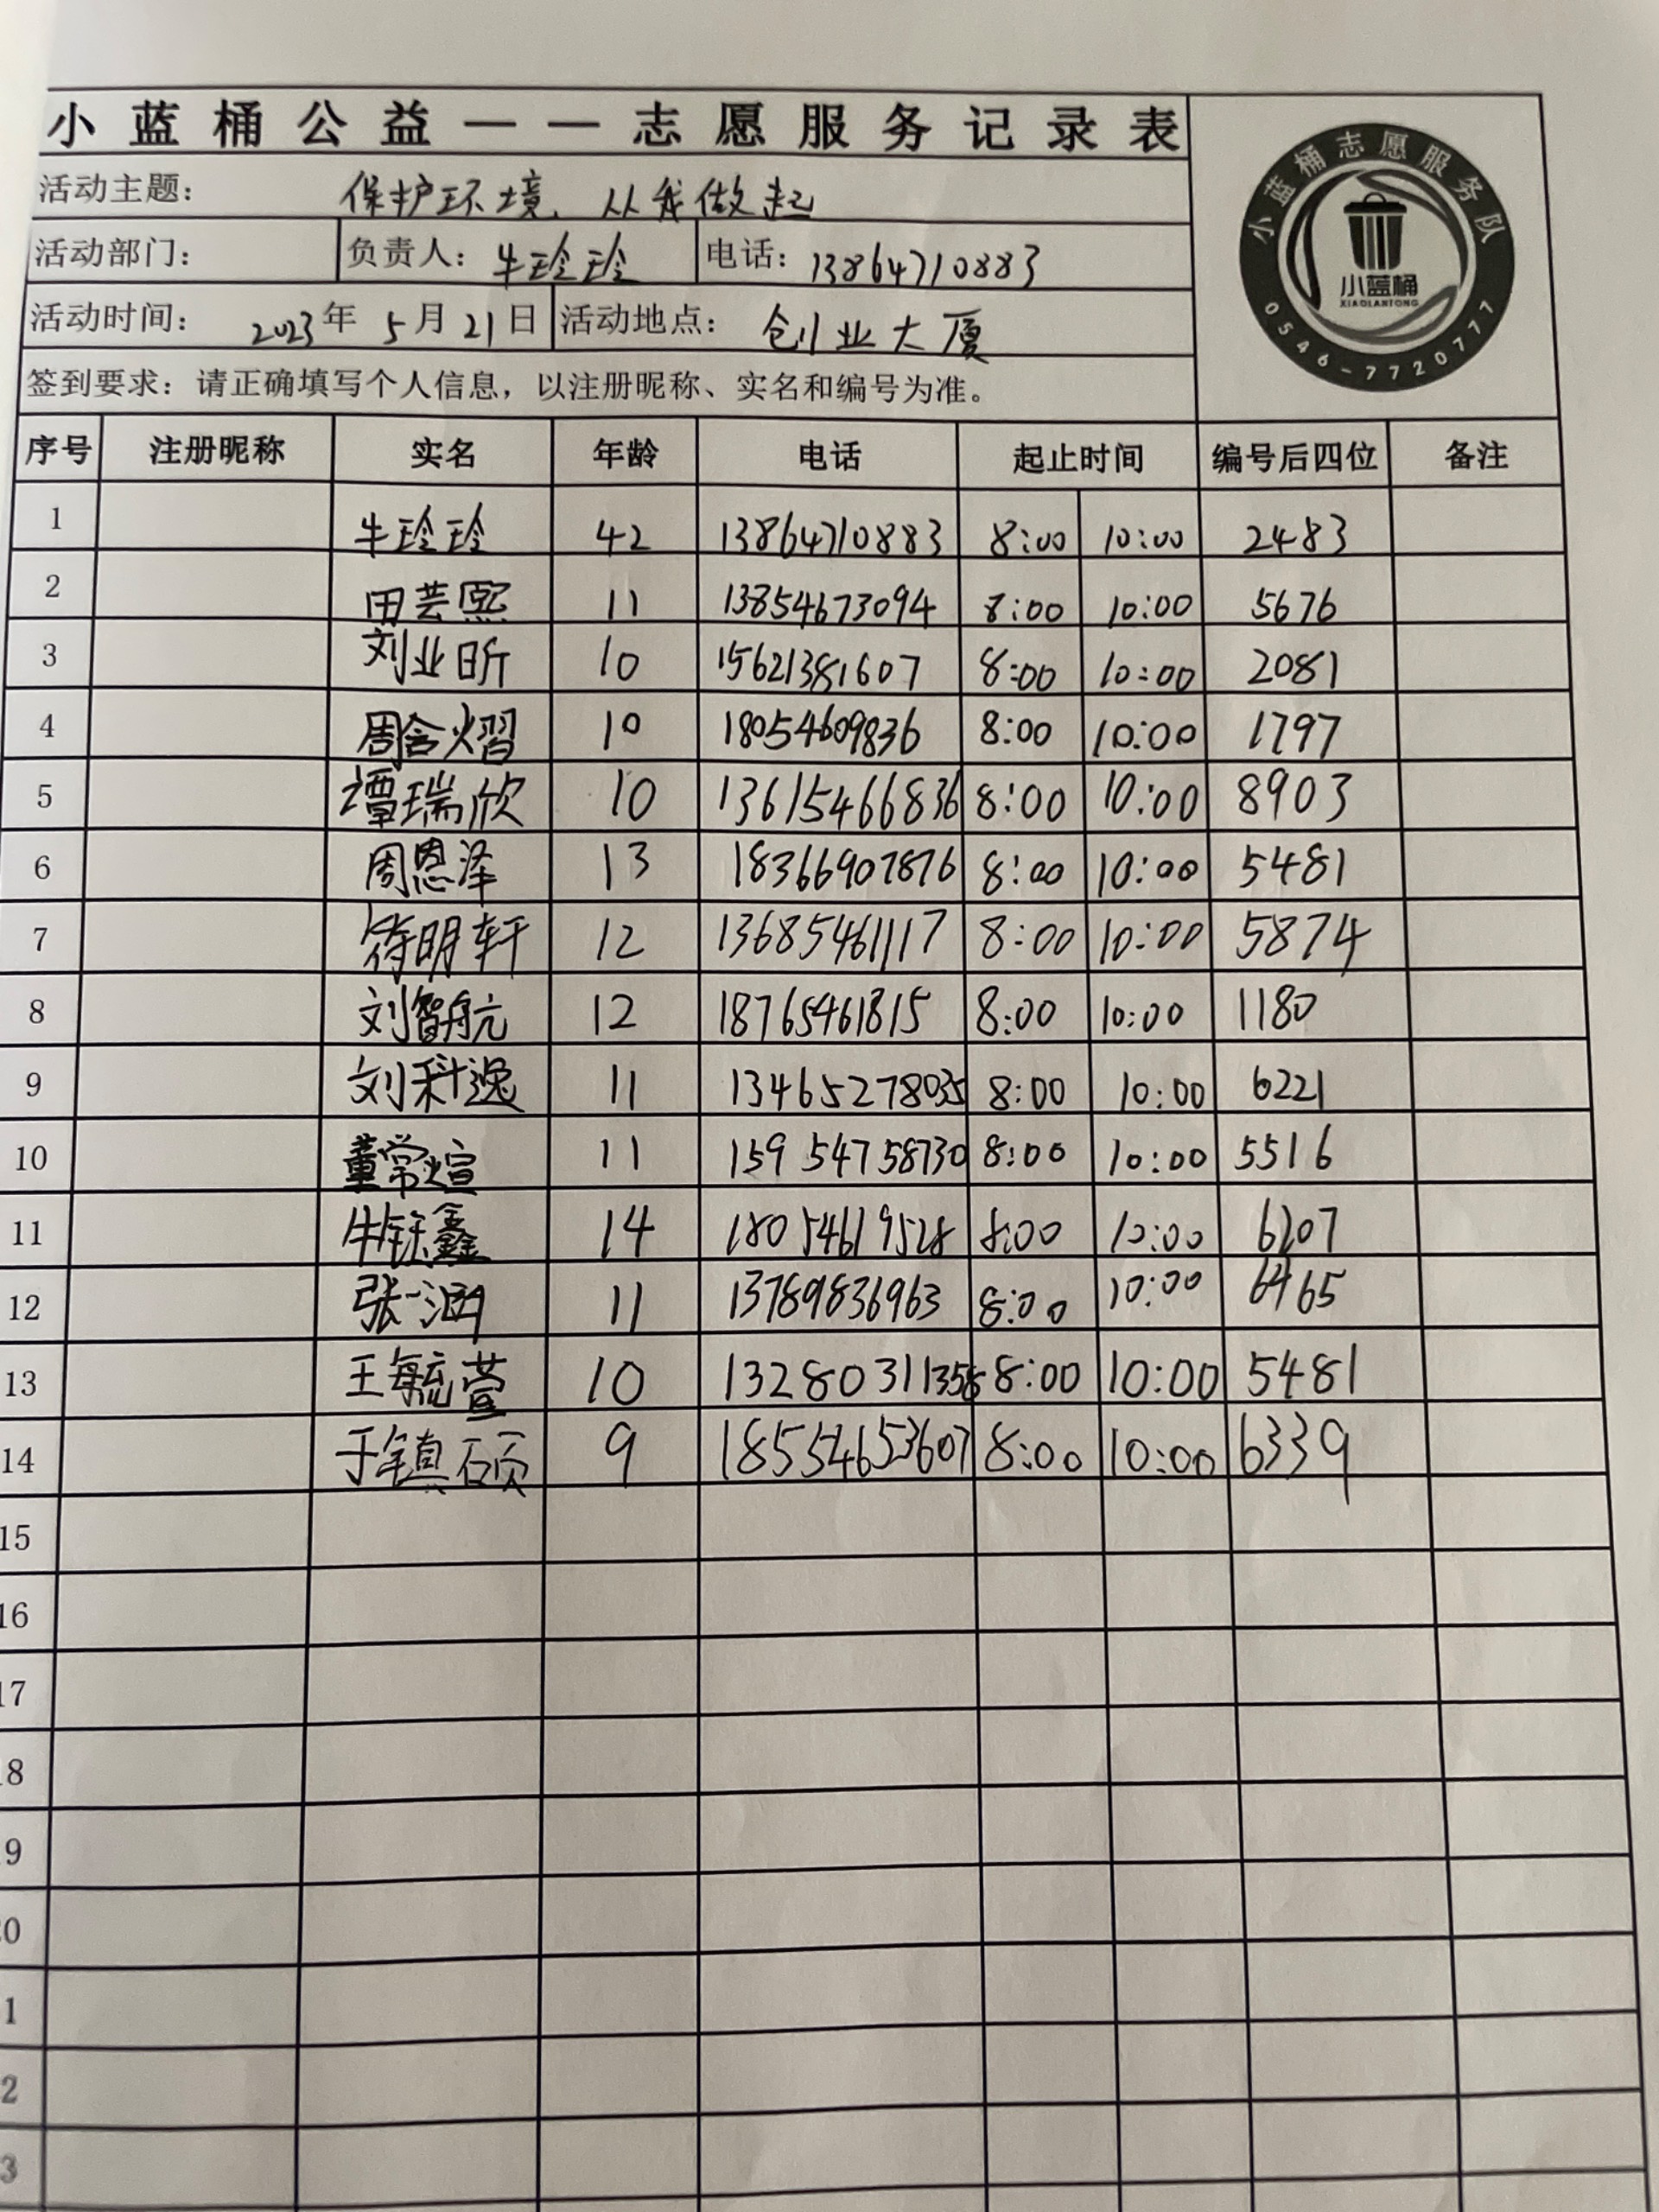 小蓝桶公益——志愿服务记录表
小蓝桶志愿服务队
小蓝桶
XIAOLANTONG
0546-7720777
活动主题： 保护环境、从我做起
活动部门： 负责人：牛玲玲 电话：13864710883
活动时间： 2023年 5月21日 活动地点： 创业大厦
签到要求：请正确填写个人信息，以注册昵称、实名和编号为准。
序号 注册昵称 实名 年龄 电话 起止时间 编号后四位 备注
1 牛玲玲 42 13864710883 8:00 10:00 2483
2 田芸熙 11 13854673094 8:00 10:00 5676
3 刘业昕 10 15621381607 8:00 10:00 2081
4 周含熠 10 18054609836 8:00 10:00 1797
5 谭瑞欣 10 13615466836 8:00 10:00 8903
6 周恩泽 13 18366907876 8:00 10:00 5481
7 明轩 12 13685461117 8:00 10:00 5874
8 刘智航 12 18765461815 8:00 10:00 1180
9 刘科逸 11 13465278035 8:00 10:00 6221
10 董常煊 11 15954758730 8:00 10:00 5516
11 牛钰鑫 14 18054619528 8:00 10:00 6207
12 张一涵 11 13789836963 8:00 10:00 6465
13 王毓萱 10 13280311358 8:00 10:00 5481
14 于镇硕 9 18554653607 8:00 10:00 6339
15
16
17
18
19
20
1
2
3